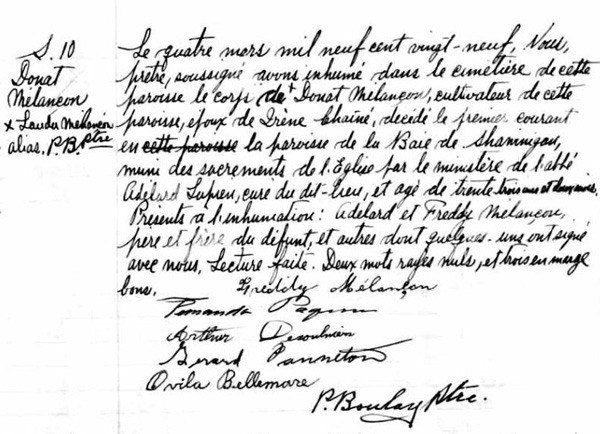 S. 10
Donat
Mélancon
x Lauda Mélancon
alias. P.B. Ptre
Le quatre mars mil neuf cent vingt-neuf, Nous,
prêtre, soussigné avons inhumé dans le cimetière de cette
paroisse le corps de + Donat Mélançon, cultivateur de cette
paroisse, époux de Irène Chaîné, décédé le premier courant
en cette paroisse la paroisse de la Baie de Shawinigan,
muni des sacrements de l'Eglise par le ministère de l'abbé
Adélard Lupien, curé du dit-lieu, et agé de trente trois ans et deux mois.
Présents a l'inhumation: Adélard et Freddy Mélancon,
père et frère du défunt, et autres dont quelques-uns ont signé
avec nous. Lecture faite. Deux mots rayés nuls, et trois en marge
bons.
Freddy Mélançon
Paquin
Arthur Desaulniers
Gérard Panneton
Ovila Bellemare
P. Boulay Ptre.